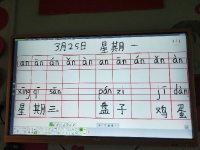 3月25日 星期一
an ān án ǎn àn an ān án ǎn àn
xīng qī sān pán zi jī dàn
星期三 盘子 鸡蛋